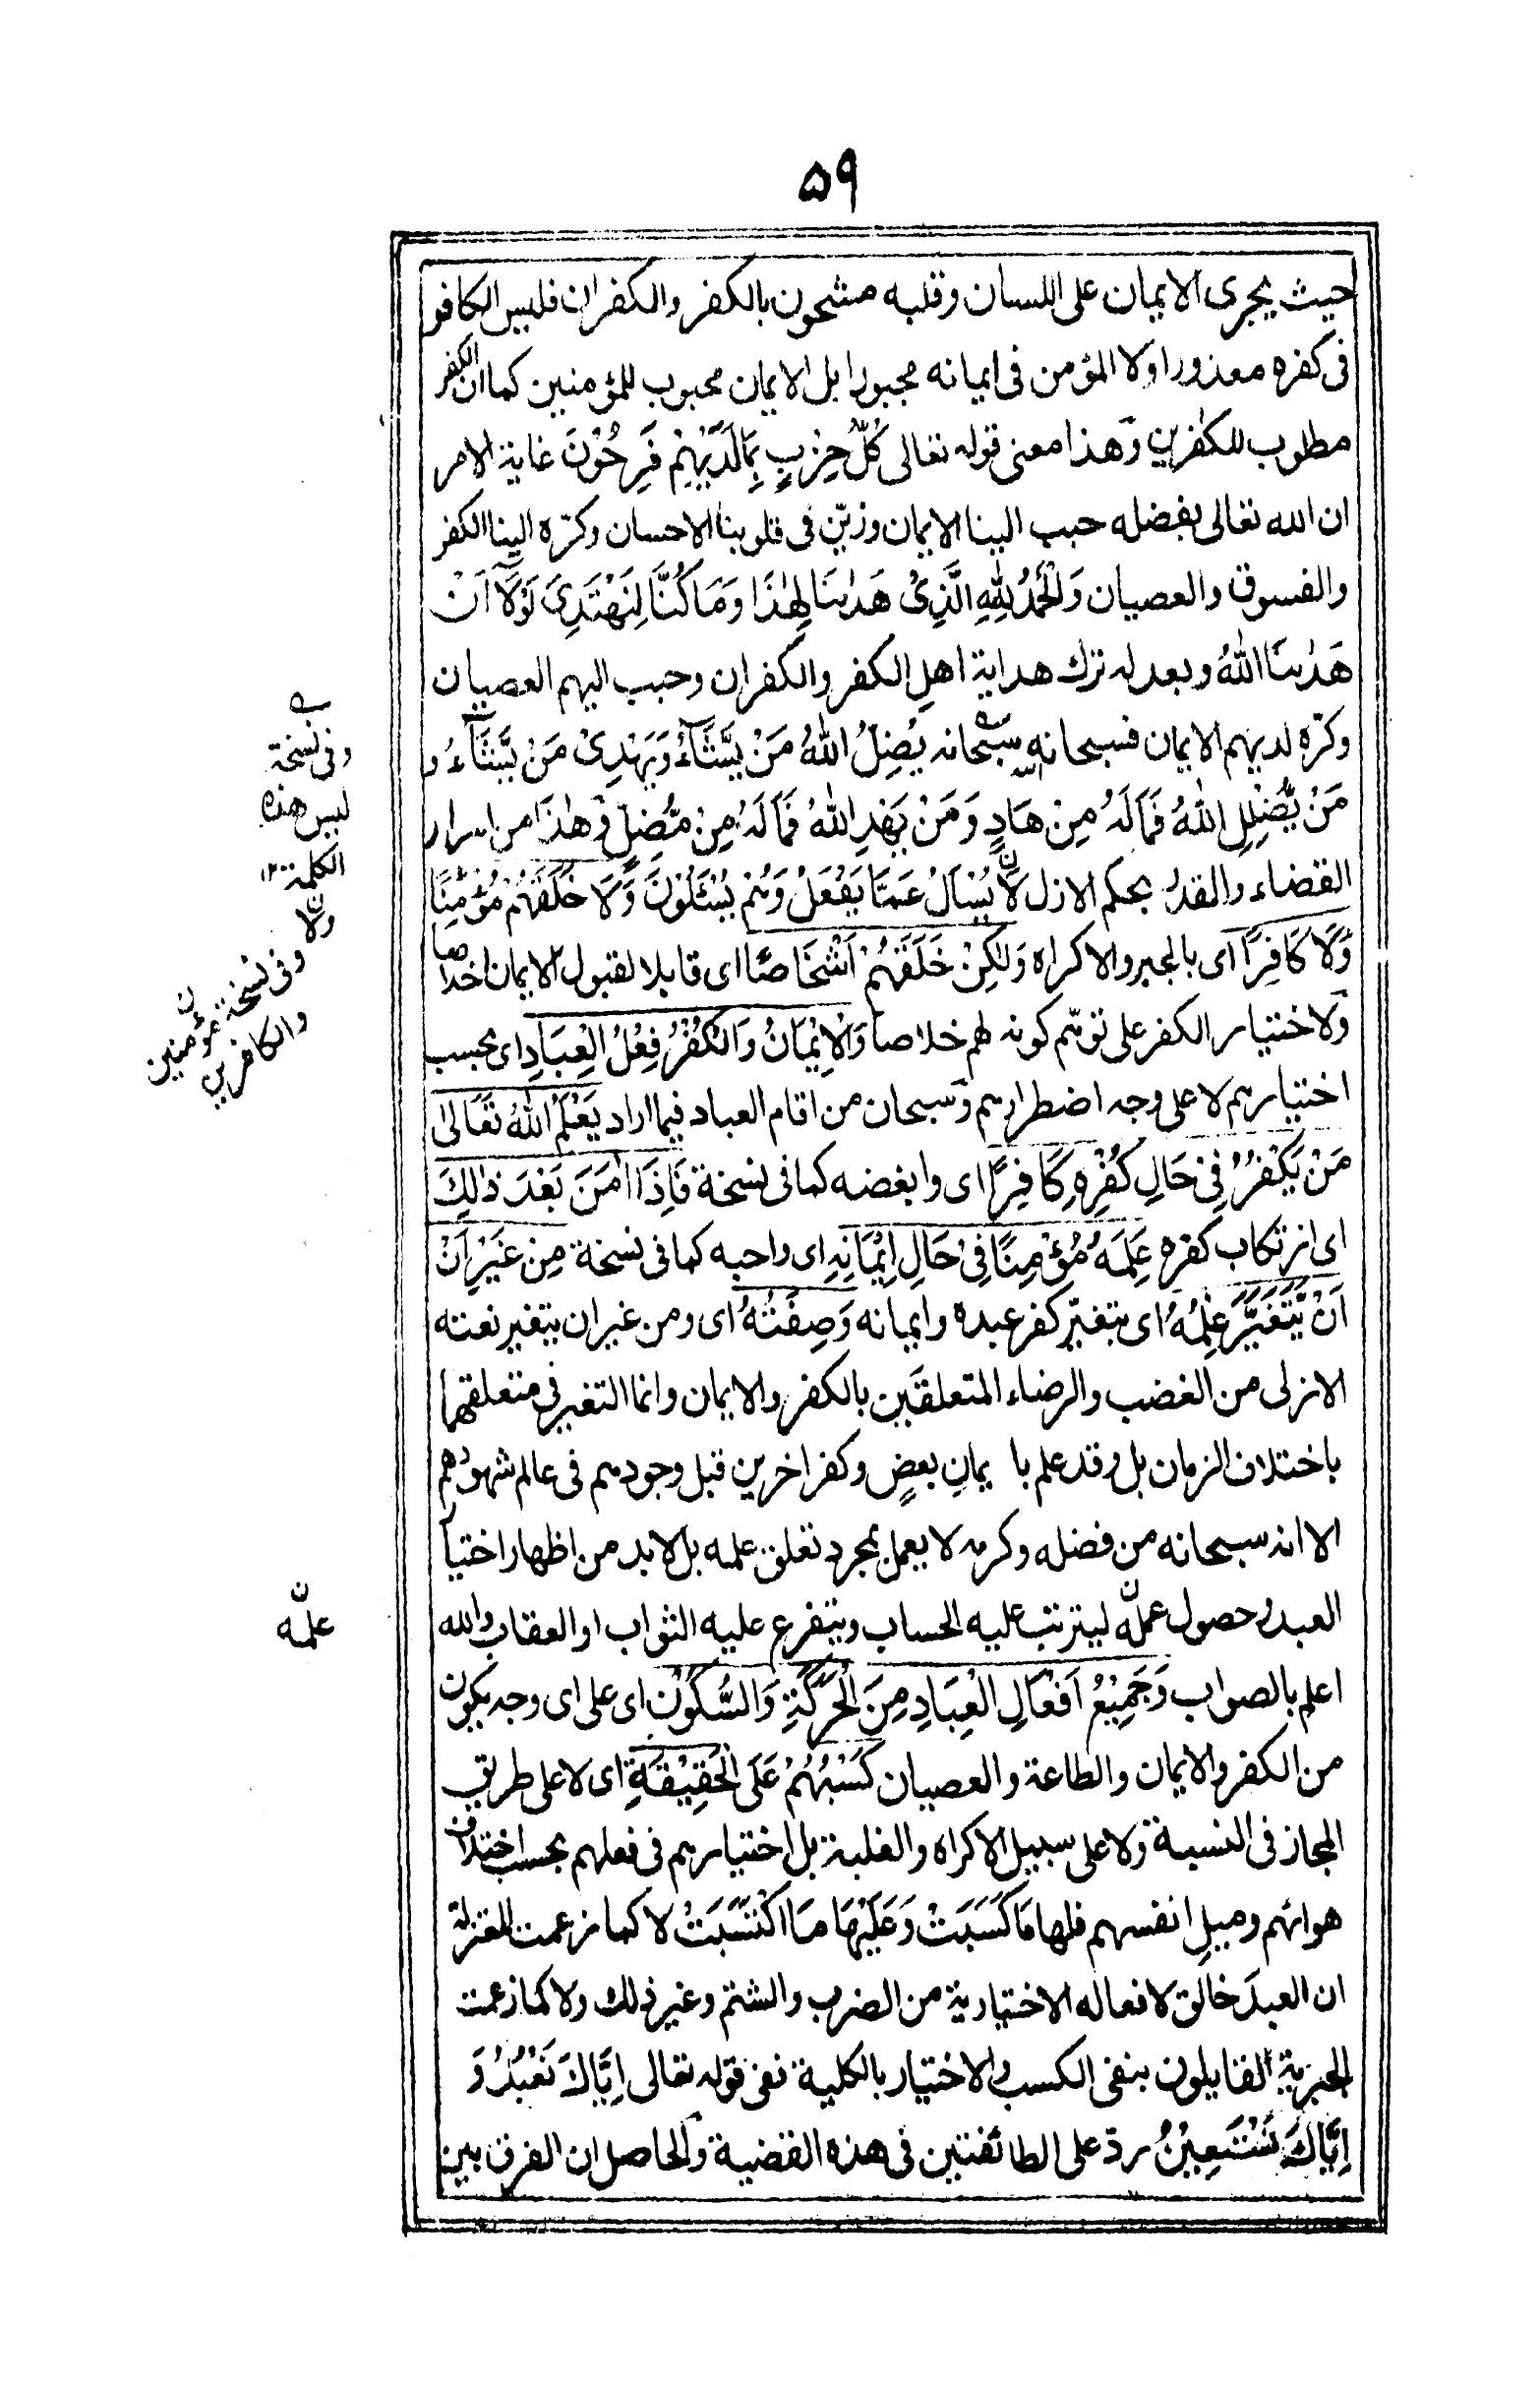 ۵۹
حيث يجرى الايمان على اللسان وقلبه مشحون بالكفر والكفران فليس الكافر
فى كفره معذورا ولا المؤمن فى ايمانه مجبورا بل الايمان محبوب للمؤمنين كما ان الكفر
مطلوب للكفرين وهذا معنى قوله تعالى كُلُّ حِزْبٍ بِمَا لَدَيْهِمْ فَرِحُوْنَ غاية الامر
ان الله تعالى بفضله حبب الينا الايمان وزيّن فى قلوبنا الاحسان وكرّه الينا الكفر
والفسوق والعصيان وَالْحَمْدُ لِلّٰهِ الَّذِىْ هَدٰىنَا لِهٰذَا وَمَا كُنَّا لِنَهْتَدِىَ لَوْلَآ اَنْ
هَدٰىنَا اللّٰهُ وبعدله ترك هداية اهل الكفر والكفران وحبب اليهم العصيان
وكرّه لديهم الايمان فسبحانه سبحانه يُضِلُّ اللّٰهُ مَنْ يَّشَآءُ وَيَهْدِىْ مَنْ يَّشَآءُ و
مَنْ يُّضْلِلِ اللّٰهُ فَمَا لَهُ مِنْ هَادٍ وَمَنْ يَهْدِ اللّٰهُ فَمَا لَهُ مِنْ مُّضِلٍّ وهٰذا من اسرار
القضاء والقدر بحكم الازل لَا يُسْاَلُ عَمَّا يَفْعَلُ وَهُمْ يُسْئَلُوْنَ وَّلَا خَلَقَهُمْ مُؤْمِنًا
وَّلَا كَافِرًا اى بالجبر والاكراه وَلٰكِنْ خَلَقَهُمْ اَشْخَاصًا اى قابلا لقبول الايمان اخلاصا
ولاختيار الكفر على توهّم كونه لهم خلاصا وَالْاِيْمَانُ وَالْكُفْرُ فِعْلُ الْعِبَادِ اى بحسب
اختيارهم لا على وجه اضطرارهم وسبحان من اقام العباد فيما اراد يَعْلَمُ اللّٰهُ تَعَالٰى
مَنْ يَكْفُرُ فِىْ حَالِ كُفْرِهٖ كَافِرًا اى وابغضه كما فى نسخة فَاِذَا اٰمَنَ بَعْدَ ذٰلِكَ
اى ارتكاب كفره عَلِمَهُ مُؤْمِنًا فِىْ حَالِ اِيْمَانِهٖ اى واحبه كما فى نسخة مِنْ غَيْرِ اَنْ
اَنْ يَّتَغَيَّرَ عِلْمُهُ اى بتغيّر كفر عبده وايمانه وَصِفَتُهُ اى ومن غير ان يتغير نعته
الازلى من الغضب والرضاء المتعلقَين بالكفر والايمان وانما التغير فى متعلقهما
باختلاف الزمان بل وقد علم با يمانِ بعضٍ وكفر اخرين قبل وجودهم فى عالم شهودهم
الا انه سبحانه من فضله وكرمه لا يعمل بمجرد تعلق علمه بل لا بد من اظهار اختيا
العبد وحصول عمله ليترتب عليه الحساب ويتفرع عليه الثواب او العقاب والله
اعلم بالصواب وَجَمِيْعُ اَفْعَالِ الْعِبَادِ مِنَ الْحَرَكَةِ وَالسُّكُوْنِ اى على اى وجه يكون
من الكفر والايمان والطاعة والعصيان كَسْبُهُمْ عَلَى الْحَقِيْقَةِ اى لا على طريق
المجاز فى النسبة ولا على سبيل الاكراه والغلبة بل اختيارهم فى فعلهم بحسب اختلاف
هوائهم وميلِ انفسهم فلها مَا كَسَبَتْ وَعَلَيْهَا مَا اكْتَسَبَتْ لا كما زعمت المعتزلة
ان العبدَ خالق لافعاله الاختيارية من الضرب والشتم وغير ذلك ولا كما زعمت
الجبرية القايلون بنفى الكسب والاختيار بالكلية ففى قوله تعالى اِيَّاكَ نَعْبُدُ وَ
اِيَّاكَ نَسْتَعِيْنُ ردّ على الطائفتين فى هذه القضية والحاصل ان الفرق بين
وفى نسخة
ليس هذه
الكلمة ۱۲
ولا وفى نسخة مؤمنين
والكافرين
ن
علمه